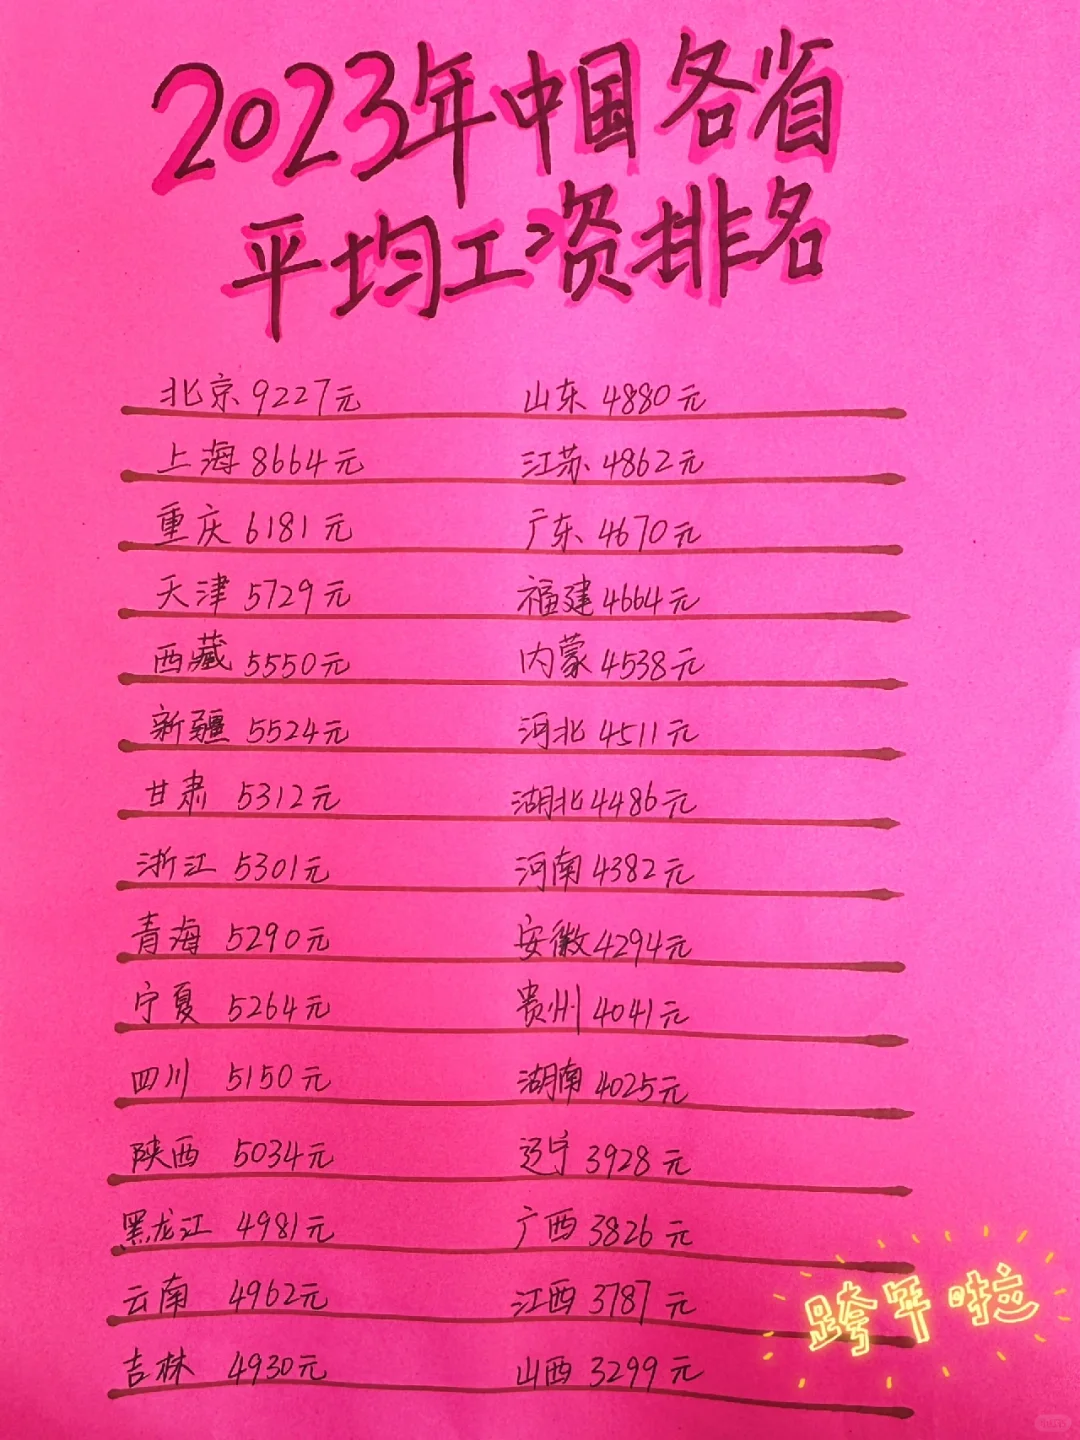 2023年中国各省
平均工资排名
北京 9227元
上海 8664元
重庆 6181元
天津 5729元
西藏 5550元
新疆 5524元
甘肃 5312元
浙江 5301元
青海 5290元
宁夏 5264元
四川 5150元
陕西 5034元
黑龙江 4981元
云南 4962元
吉林 4930元
山东 4880元
江苏 4862元
广东 4670元
福建 4664元
内蒙 4538元
河北 4511元
湖北 4486元
河南 4382元
安徽 4294元
贵州 4041元
湖南 4025元
辽宁 3928元
广西 3826元
江西 3787元
山西 3299元
跨年啦